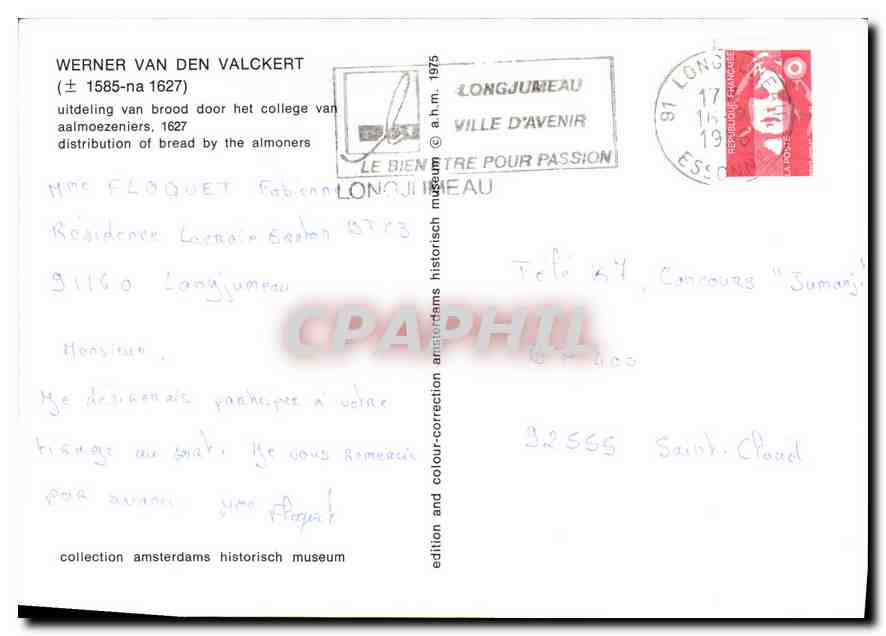 WERNER VAN DEN VALCKERT
(± 1585-na 1627)
uitdeling van brood door het college van
aalmoezeniers, 1627
distribution of bread by the almoners
LONGJUMEAU
VILLE D'AVENIR
LE BIEN ETRE POUR PASSION
LONGJUMEAU
91 LONGJUMEAU
17
19
ESSONNE
REPUBLIQUE FRANÇAISE
LA POSTE
Mme FLOQUET Fabienne
Résidence
91160 Longjumeau
Monsieur,
Je désirerais participer à votre
tirage au sort. Je vous remercie
par avance Mme Floquet
Télé K7, Concours "Jumanji"
400
92555 Saint-Cloud
edition and colour-correction amsterdams historisch museum © a.h.m. 1975
collection amsterdams historisch museum
CPAPHIL